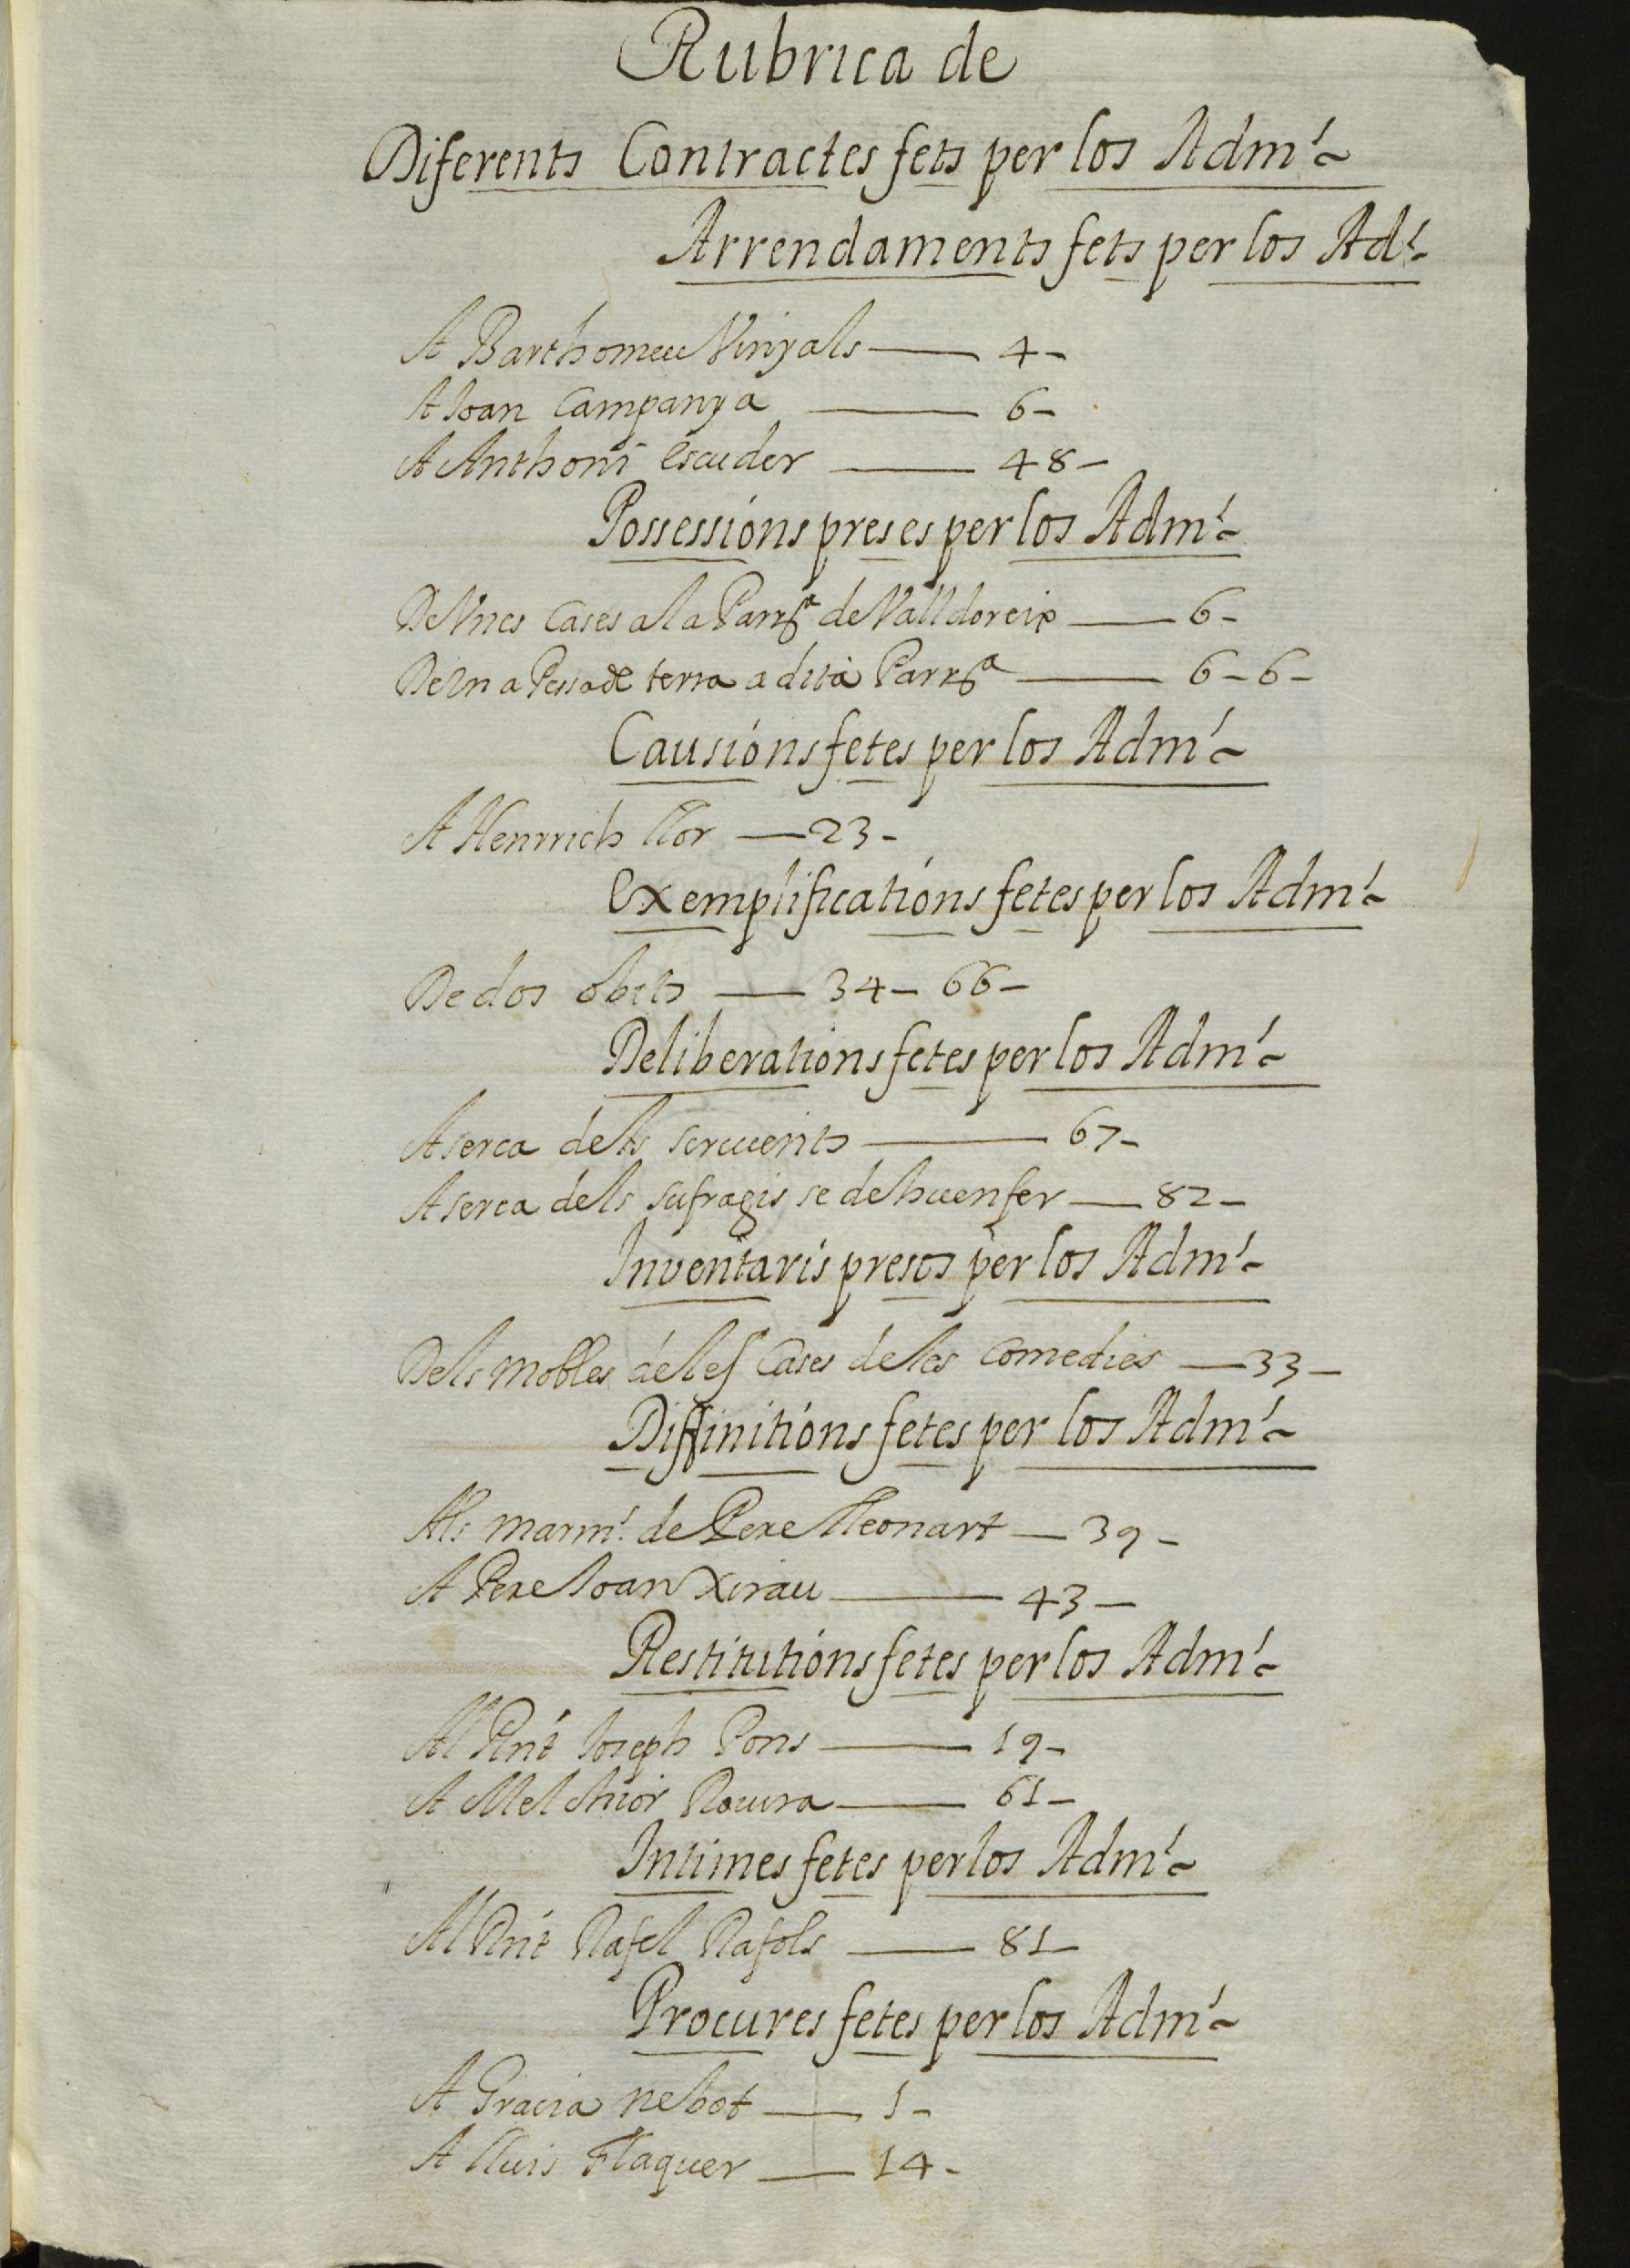 Rubrica de
Diferents Contractes fets per los Adm.ʳˢ
Arrendaments fets per los Ad.ʳˢ
A Barthomeu Vinyals —— 4 –
A Joan Campanya —— 6 –
A Anthoni Escuder —— 48 –
Possessions preses per los Adm.ʳˢ
De Unes Cases a la Parrª de Valldoreix —— 6 –
De Una Pessa de terra a dita Parrª —— 6 – 6 –
Causions fetes per los Adm.ʳˢ
A Henrrich Llor — 23 –
Exemplifications fetes per los Adm.ʳˢ
De dos obits —— 34 – 66 –
Deliberations fetes per los Adm.ʳˢ
Aserca dels servents —— 67 –
Aserca dels sufragis se dehuen fer —— 82 –
Inventaris presos per los Adm.ʳˢ
Dels mobles de les Cases de les Comedies — 33 –
Diffinitions fetes per los Adm.ʳˢ
Als marm.ʳˢ de Pere Lleonart — 39 –
A Pere Joan Xirau —— 43 –
Restitutions fetes per los Adm.ʳˢ
Al Rnt Joseph Pons —— 19 –
A Melchior Rovira —— 61 –
Intimes fetes per los Adm.ʳˢ
Al Rnt Rafel Rafols —— 81 –
Procures fetes per los Adm.ʳˢ
A Gracia Nebot —— 1 –
A Lluis Flaquer —— 14 –